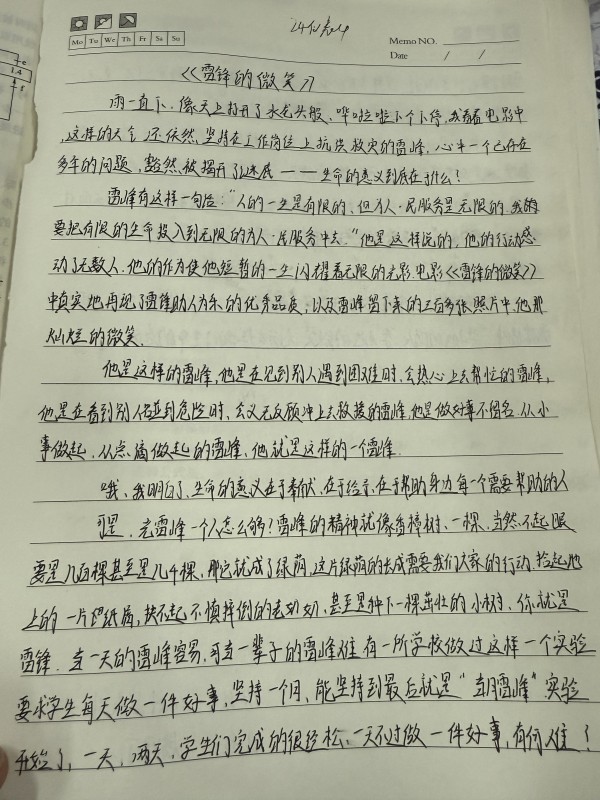 Mo Tu We Th Fr Sa Su
Memo NO.
Date / /
《雷锋的微笑》
雨一直下，像天上打开了水龙头般，哗啦啦下个不停，我看着电影中
这样的天气还依然坚持在工作岗位上抗洪救灾的雷峰，心中一个已存在
多年的问题，豁然被揭开了迷底——生命的意义到底在于什么！
雷峰有这样一句话："人的一生是有限的，但为人民服务是无限的，我
要把有限的生命投入到无限的为人民服务中去。"他是这样说的，他的行动感
动了无数人，他的作为使他短暂的一生闪耀着无限的光影，电影《雷锋的微笑》
中真实地再现了雷锋助人为乐的优秀品质，以及雷峰留下来的三百多张照片中，他那
灿烂的微笑。
他是这样的雷峰，他是在见到别人遇到困难时，会热心上去帮忙的雷峰，
他是在看到别人碰到危险时，会义无反顾冲上去救援的雷峰，他是做好事不留名，从小
事做起，从点滴做起的雷峰，他就是这样的一个雷峰。
哦，我明白了，生命的意义在于奉献，在于给予，在于帮助身边每一个需要帮助的人
可是，光雷峰一个人怎么够？雷峰的精神就像香樟树，一棵，当然不起眼
要是几百棵甚至是几千棵，那它就成了绿荫，这片绿荫的长成需要我们大家的行动，捡起地
上的一片纸屑，扶起不慎摔倒的老奶奶，甚至是种下一棵茁壮的小树，你就是
雷锋，当一天的雷峰容易，可当一辈子的雷峰难，有一所学校做过这样一个实验
要求学生每天做一件好事，坚持一个月，能坚持到最后就是"当月雷峰"实验
开始了，一天，两天，学生们完成的很轻松，一天不过做一件好事，有何难！